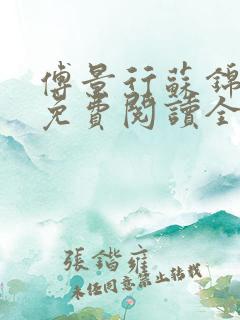 傅景行蘇錦
免費閱讀全
張鍇雍
未经同意禁止转载